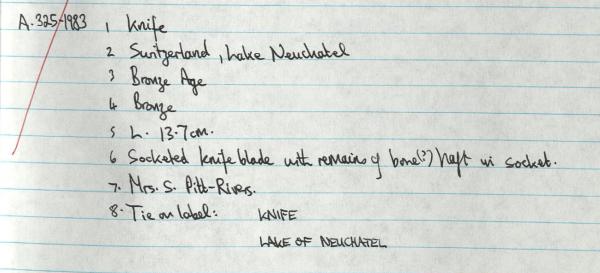 A.325-1983 1 Knife
2 Switzerland, Lake Neuchatel
3 Bronze Age
4 Bronze
5 L. 13.7cm.
6 Socketed knife blade with remains of bone(?) haft in socket.
7. Mrs. S. Pitt-Rivers.
8. Tie on label: KNIFE
LAKE OF NEUCHATEL